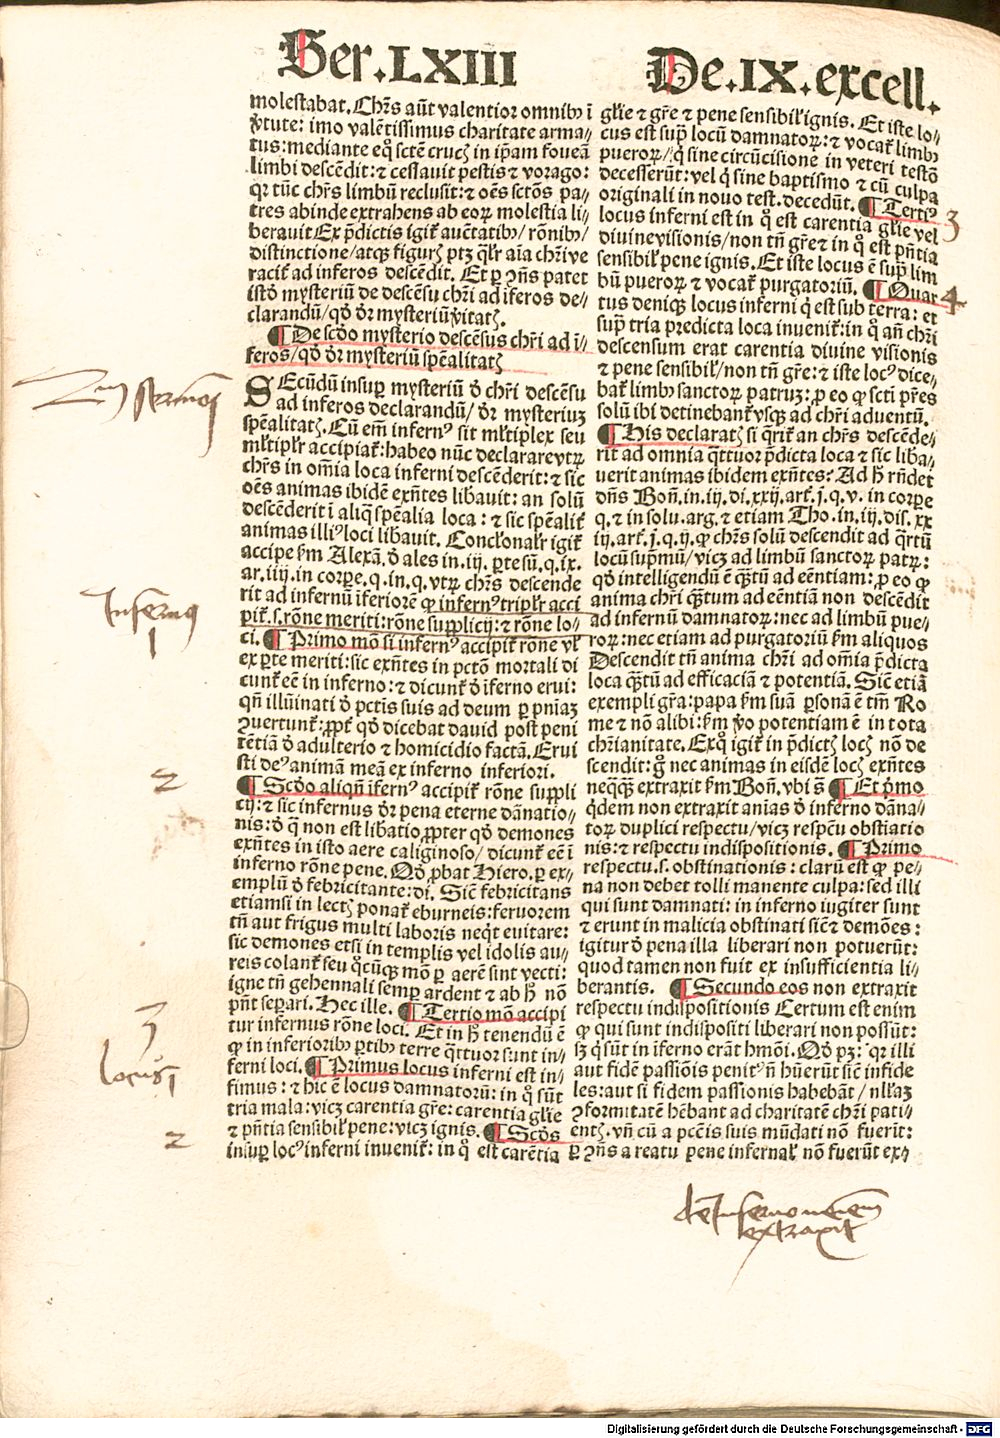 Ser.LXIII
De.IX.excell.
molestabat. Chr̄s aūt valentior omnibꝰ ī
v̓tute: imo valētissimus charitate arma⸗
tus: mediante eꝙ̊ sctēm crucꝭ in ip̄am foueā
limbi descēdit: ⁊ cessauit pestis ⁊ vorago:
qꝛ tūc chr̄s limbū reclusit: ⁊ oēs sctōs pa⸗
tres abinde extrahens ab eoꝝ molestia li⸗
berauit Ex p̄dictis igit̉ auc̄tatibꝰ/ rōnibꝰ/
distinctione/ atqꝫ figurꝭ ptꝫ ql̓r aīa chr̄i ve
racit̉ ad inferos descēdit. Et ꝑ ꝯn̄s patet
istō mysteriū de descēsu chr̄i ad īferos de⸗
clarandū/ qd̓ dr̄ mysteriū v̓itatꝭ.
¶ De scd̓o mysterio descēsus chr̄i ad ī⸗
feros/ qd̓ dr̄ mysteriū spēalitatꝭ
SEcūdū insup mysteriū d̓ chr̄i descēsu
ad inferos declarandū/ dr̄ mysteriuꝫ
spēalitatꝭ. Cū em̄ infernꝰ sit ml̓tiplex seu
ml̓tiplr̓ accipiat̉: habeo nūc declarare vtꝝ
chr̄s in om̄ia loca inferni descēderit: ⁊ sic
oēs animas ibidē exn̄tes lib̓auit: an solū
descēderit ī aliq̄ spēalia loca: ⁊ sic spēalit̓
animas illiꝰ loci lib̓auit. Conclonalr̓ igit̉
accipe ẜm Alexā. d̓ ales in .iij. ꝑte sū. q. ix.
ar. iiij. in corꝑe. q. in. q. vtꝝ chr̄s descende
rit ad infernū īferiorē ꝙ infernꝰ triplr̓ acci
pit̉. s. rōne meriti: rōne supplicij: ⁊ rōne lo⸗
ci. ¶ Primo mō si infernꝰ accipit̉ rōne vl̓
ex ꝑte meriti: sic exn̄tes in pctō mortali di
cunt̉ eē in inferno: ⁊ dicunt̉ d̓ īferno erui:
qn̄ illūinati d̓ pctīs suis ad deum ꝑ pnīaꝫ
ꝯuertunt̉: ꝓpt̓ qd̓ dicebat dauid post peni
tētiā d̓ adulterio ⁊ homicidio factā. Erui
sti deꝰ animā meā ex inferno inferiori.
¶ Scd̓o aliqn̄ ifernꝰ accipit̉ rōne suppli
cij: ⁊ sic infernus dr̄ pena eterne dānatio⸗
nis: d̓ q̄ non est lib̓atio, ꝓpter qd̓ demones
exn̄tes in isto aere caliginoso/ dicunt̉ eē ī
inferno rōne pene. Qd̓ ꝓbat Hiero. ꝑ ex⸗
emplū d̓ febricitante: di. Sic̄ febricitans
etiamsi in lectꝭ ponat̉ eburneis: feruorem
tn̄ aut frigus multi laboris neqt̓ euitare:
sic demones etsi in templis vel idolis au⸗
reis colant̉ seu qͦcūqꝫ mō ꝑ aerē sint vecti:
igne tn̄ gehennali semꝑ ardent ⁊ ab h̓ nō
pn̄t seꝑari. Hec ille. ¶ Tertio mō accipi
tur infernus rōne loci. Et in h̓ tenendū ē
ꝙ in inferioribꝰ ꝑtibꝰ terre qͣttuor sunt in⸗
ferni loci. ¶ Primus locus inferni est in⸗
fimus: ⁊ hic ē locus damnatorū: in qͦ sūt
tria mala: vicꝫ carentia gr̄e: carentia gl̄ie
⁊ pn̄tia sensibil̓ pene: vicꝫ ignis. ¶ Scd̓s
insuꝑ locꝰ inferni inuenit̉: in qͦ est carētia
gl̄ie ⁊ gr̄e ⁊ pene sensibil̓ ignis. Et iste lo⸗
cus est supͣ locū damnatoꝝ: ⁊ vocat̉ limbꝰ
pueroꝝ/ qͥ sine circūcisione in veteri testō
decesserūt: vel qͥ sine baptismo ⁊ cū culpa
originali in nouo test. decedūt. ¶ Tertiꝰ
locus inferni est in qͦ est carentia gl̄ie vel
diuine visionis/ non tn̄ gr̄e ⁊ in qͦ est pn̄tia
sensibil̓ pene ignis. Et iste locus ē supͣ lim
bū pueroꝝ ⁊ vocat̉ purgatoriū. ¶ Quar
tus deniqꝫ locus inferni qͥ est sub terra: et
supͣ tria predicta loca inuenit̉: in qͦ an̄ chr̄i
descensum erat carentia diuine visionis
⁊ pene sensibil̓/ non tn̄ gr̄e: ⁊ iste locꝰ dice⸗
bat̉ limbꝰ sanctoꝝ patruꝫ: ꝓ eo ꝙ scti pr̄es
solū ibi detinebant̉ vsqꝫ ad chr̄i aduentū.
¶ His declaratꝭ si q̄rit̉ an chr̄s descēde⸗
rit ad omnia qͣttuor p̄dicta loca ⁊ sic liba⸗
uerit animas ibidem exn̄tes? Ad h̓ rn̄det
dn̄s Bon̄. in. iij. di. xxij. art̓. j. q. v. in corꝑe
q. ⁊ in solu. arg. ⁊ etiam Tho. in. iij. dis. xx
ij. art̓. j. q. ij. ꝙ chr̄s solū descendit ad qͣrtū
locū supͣmū/ vicꝫ ad limbū sanctoꝝ patꝝ:
qd̓ intelligendū ē qͣꝫtū ad eēntiam: ꝓ eo ꝙ
anima chr̄i qͣꝫtum ad eēntiā non descēdit
ad infernū damnatoꝝ: nec ad limbū pue⸗
roꝝ: nec etiam ad purgatoriū ẜm aliquos
Descendit tn̄ anima chr̄i ad om̄ia p̄dicta
loca qͣꝫtū ad efficaciā ⁊ potentiā. Sic̄ etiā
exempli gr̄a: papa ẜm suā ꝑsonā ē tm̄ Ro
me ⁊ nō alibi: ẜm v̓o potentiam ē in tota
chr̄ianitate. Ex qͦ igit̉ in p̄dictꝭ locꝭ nō de
scendit: g̊ nec animas in eisdē locꝭ exn̄tes
neqͣqͣꝫ extraxit ẜm Bon̄. vbi s̄. ¶ Et pͥmo
qͥdem non extraxit aīas d̓ inferno dāna⸗
toꝝ duplici respectu/ vicꝫ respc̄u obstiatio
nis: ⁊ respectu indispositionis. ¶ Primo
respectu. s. obstinationis: clarū est ꝙ pe⸗
na non debet tolli manente culpa: sed illi
qui sunt damnati: in inferno iugiter sunt
⁊ erunt in malicia obstinati sic̄ ⁊ demōes:
igitur d̓ pena illa liberari non potuerūt:
quod tamen non fuit ex insufficientia li⸗
berantis. ¶ Secundo eos non extraxit
respectu indispositionis Certum est enim
ꝙ qui sunt indispositi liberari non possūt:
lꝫ qͥ sūt in īferno erāt hmōi. Qd̓ pꝫ: qꝛ illi
aut fidē passiōis penitꝰ n̄ hūerūt sic̄ infide
les: aut si fidem passionis habebāt/ nl̓laꝫ
ꝯformitatē hēbant ad charitatē chr̄i pati⸗
entꝭ. vn̄ cū a pctīs suis mūdati nō fuerīt:
ꝑ ꝯn̄s a reatu pene infernal̓ nō fuerūt ex⸗
3
4
Infernus
1
2
3
Locus 1
2
de Inferno neminem
extraxit
Digitalisierung gefördert durch die Deutsche Forschungsgemeinschaft - DFG